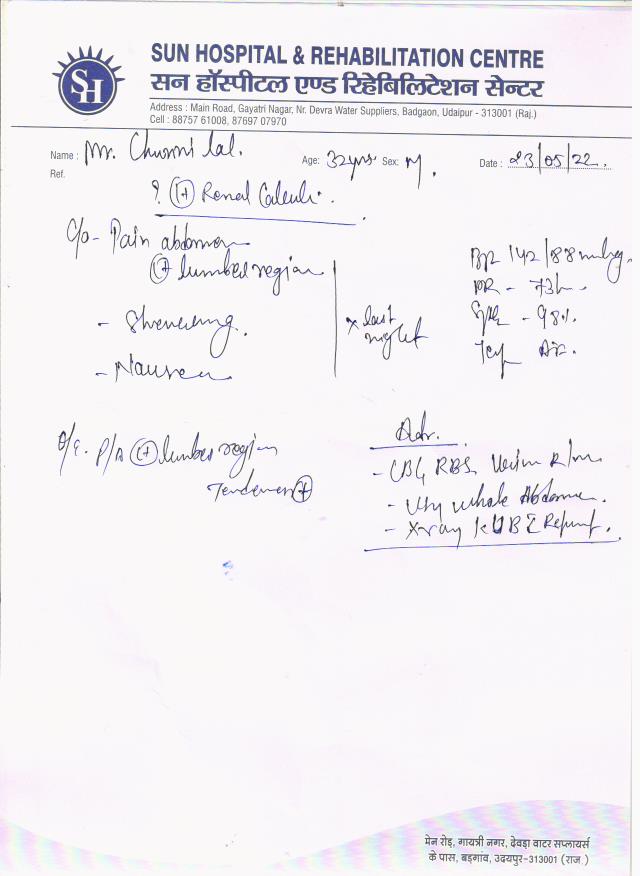 SH
SUN HOSPITAL & REHABILITATION CENTRE
सन हॉस्पीटल एण्ड रिहेबिलिटेशन सेन्टर
Address : Main Road, Gayatri Nagar, Nr. Devra Water Suppliers, Badgaon, Udaipur - 313001 (Raj.)
Cell : 88757 61008, 87697 07970
Name : Mr. Chunni lal. Age: 32yrs. Sex: M. Date : 23/05/22.
Ref.
? Renal Calculi.
C/o - Pain abdomen
lumber region
-
- Nausea
x last night
BP 142/88 mmhg.
PR - 73
SpO2 - 98%
O/E. P/A lumber region
Tenderness +
Adv.
- CBC, RBS, Urine R/M.
- USG whole Abdomen.
- X-ray KUB
मेन रोड़, गायत्री नगर, देवड़ा वाटर सप्लायर्स
के पास, बड़गांव, उदयपुर-313001 (राज.)